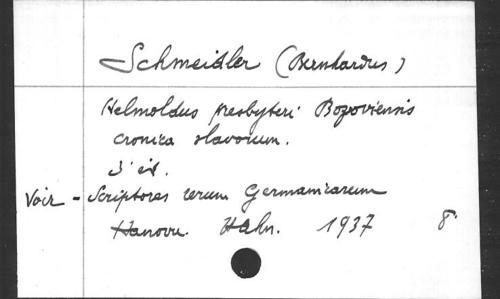 Schmeidler (Bernhardus)
Helmoldus presbyteri Bozoviensis
cronica slavorum.
3' éd.
Voir - Scriptores rerum Germanicarum
Hanovr. Hahn. 1937 8°